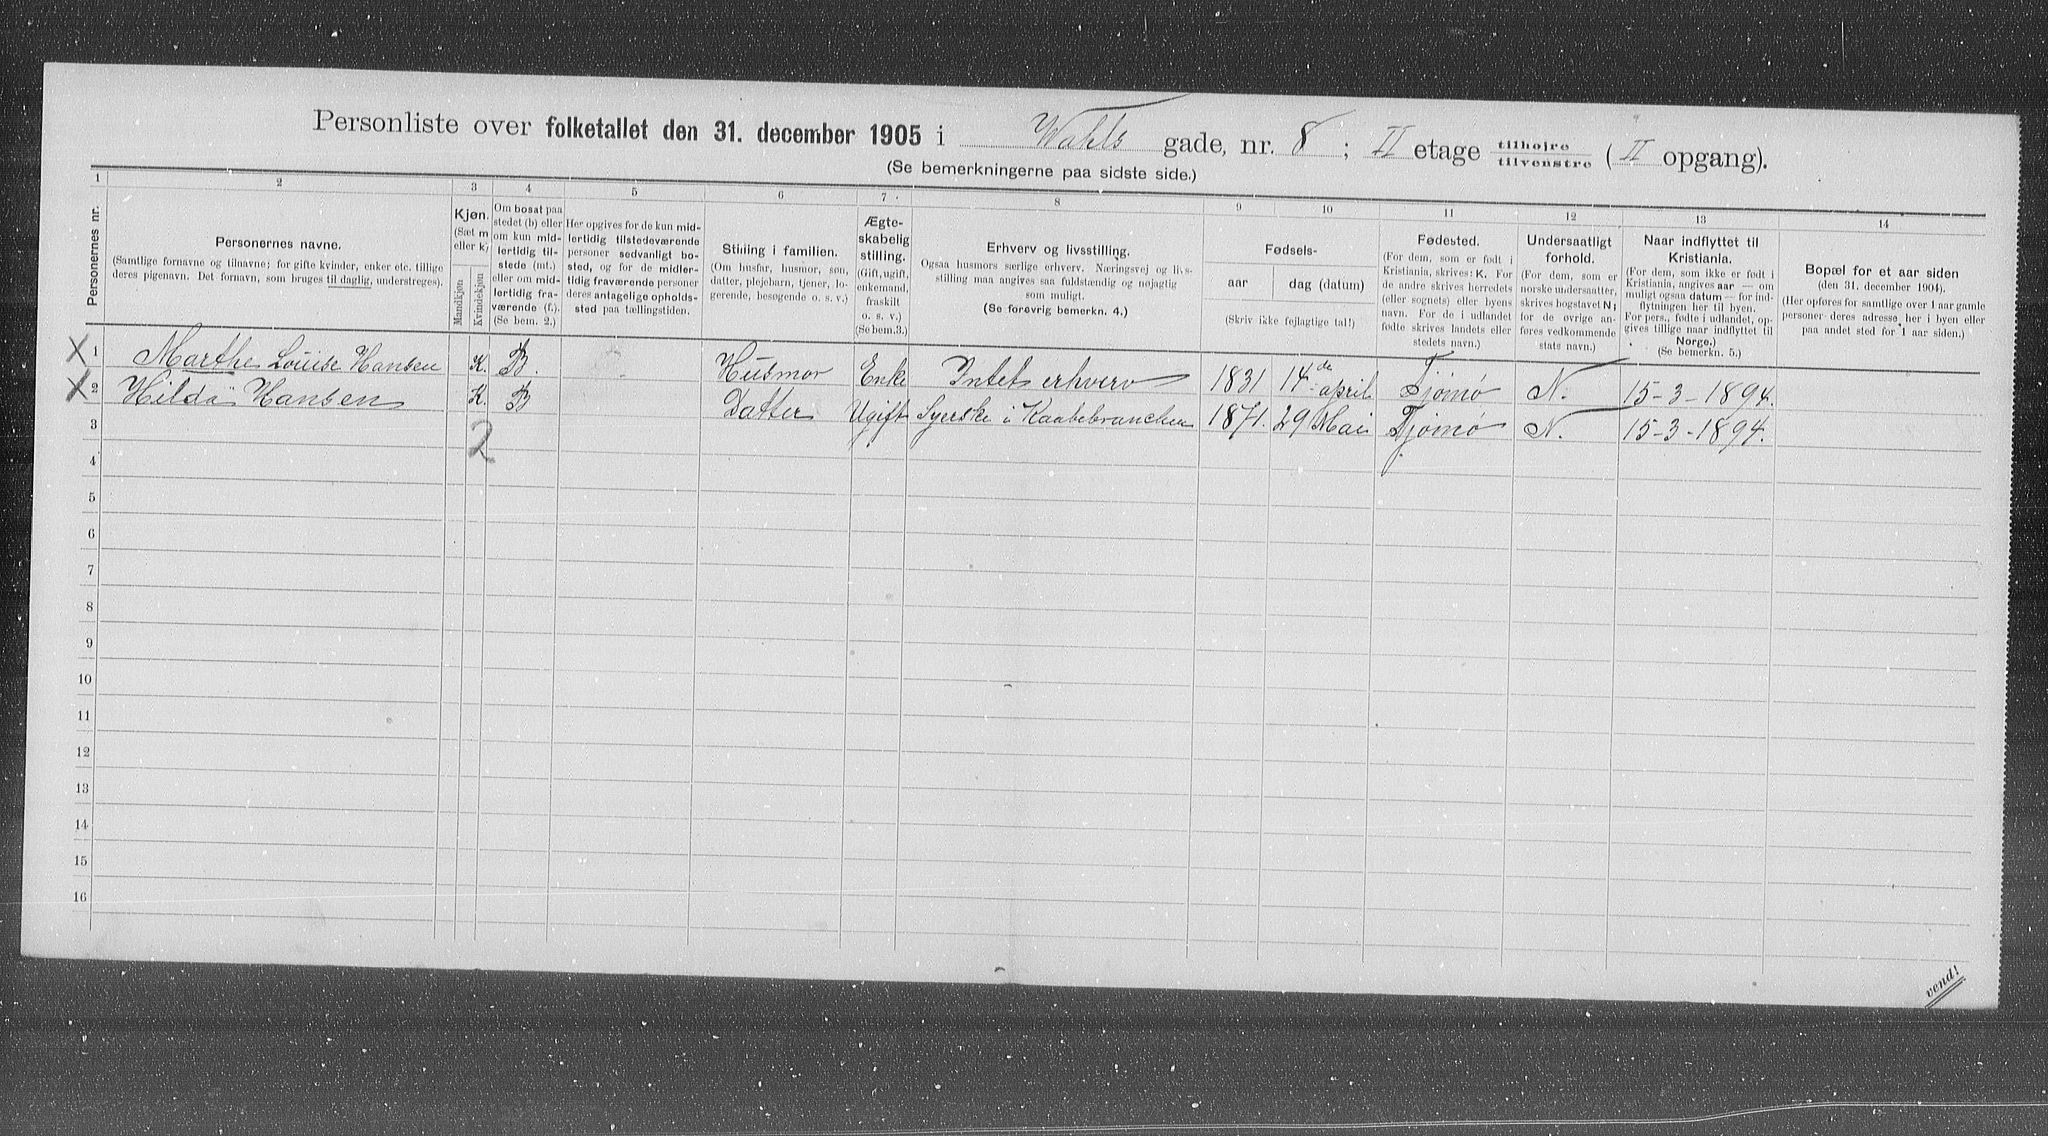 Personliste over folketallet den 31. december 1905 i Wahls gade, nr. 8 ; II etage tilhøjre tilvenstre ( II opgang).
(Se bemerkningerne paa sidste side.)
1 2 3 4 5 6 7 8 9 10 11 12 13 14
Personernes nr.
Personernes navne.
(Samtlige fornavne og tilnavne; for gifte kvinder, enker etc. tillige
deres pigenavn. Det fornavn, som bruges til daglig, understreges).
Kjøn.
(Sæt m
eller k.)
Mandkjøn
Kvindekjøn
Om bosat paa
stedet (b) eller
om kun mid-
lertidig til-
stede (mt.)
eller om mid-
lertidig fra-
værende (f.).
(Se bem. 2.)
Her opgives for de kun mid-
lertidig tilstedeværende
personer sedvanlig bo-
sted, og for de midler-
tidig fraværende personer
deres antagelige opholds-
sted paa tællingstiden.
Stilling i familien.
(Om husfar, husmor, søn,
datter, plejebarn, tjener, lo-
gerende, besøgende o. s. v.)
Ægte-
skabelig
stilling.
(Gift, ugift,
enkemand,
fraskilt
o. s. v.)
(Se bem. 3.)
Erhverv og livsstilling.
Ogsaa husmors særlige erhverv. Næringsvej og livs-
stilling maa angives saa fuldstændig og nøjagtig
som muligt.
(Se forøvrig bemerkn. 4.)
Fødsels-
aar
dag (datum)
(Skriv ikke fejlagtige tal!)
Fødested.
(For dem, som er født i
Kristiania, skrives: K. For
de andre skrives herredets
(eller sognets) eller byens
navn. For de i udlandet
fødte skrives landets eller
stedets navn.)
Undersaatligt
forhold.
(For dem, som er
norske undersaatter,
skrives bogstavet N;
for de øvrige an-
føres vedkommende
stats navn.)
Naar indflyttet til
Kristiania.
(For dem, som ikke er født i
Kristiania, angives aar — om
muligt ogsaa datum — for ind-
flytningen her til byen.
For pers., fødte i udlandet, op-
gives tillige naar indflyttet til
Norge.)
(Se bemerkn. 5.)
Bopæl for et aar siden
(den 31. december 1904).
(Her opføres for samtlige over 1 aar gamle
personer deres adresse her i byen eller
paa andet sted for 1 aar siden.)
X 1 Marthe Louise Hansen K. B. Husmor Enke Intet erhverv 1831 14de april Tjømø N. 15-3-1894.
X 2 Hilda Hansen K. B Datter Ugift Syerske i Kaabebranchen 1871. 29 Mai Tjømø N. 15-3-1894.
3 2
4
5
6
7
8
9
10
11
12
13
14
15
16
vend!